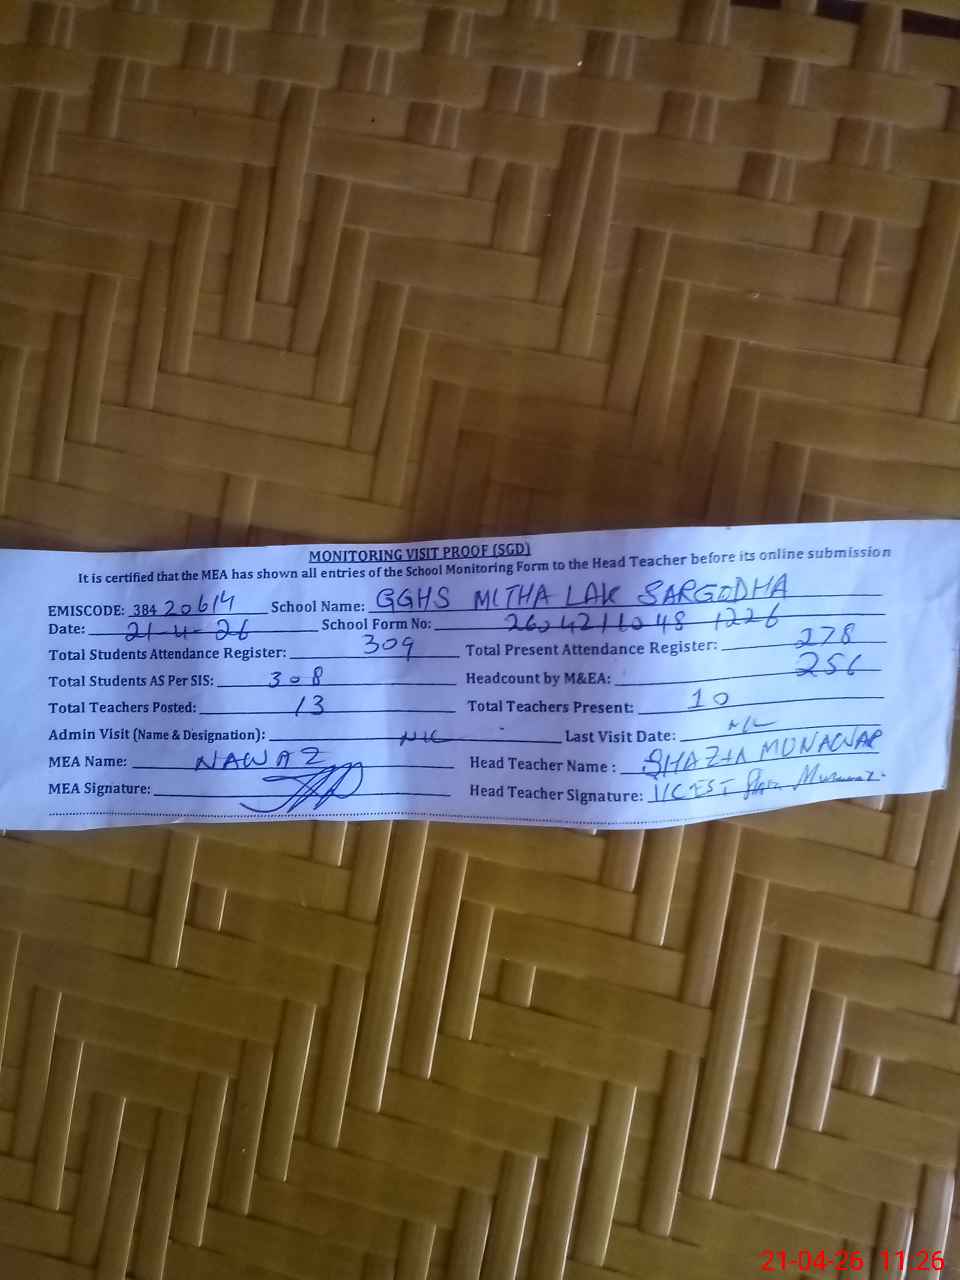 MONITORING VISIT PROOF (SGD)
It is certified that the MEA has shown all entries of the School Monitoring Form to the Head Teacher before its online submission
EMISCODE: 38420614 School Name: GGHS MITHA LAK SARGODHA
Date: 21-4-26 School Form No: 26042116048 1226
Total Students Attendance Register: 309 Total Present Attendance Register: 278
Total Students AS Per SIS: 308 Headcount by M&EA: 256
Total Teachers Posted: 13 Total Teachers Present: 10
Admin Visit (Name & Designation): NIL Last Visit Date: NIL
MEA Name: NAWAZ Head Teacher Name : SHAZIA MUNAWAR
MEA Signature: Head Teacher Signature: I/C EST
21-04-26 11:26